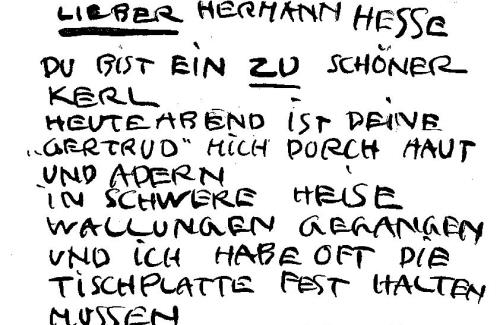 LIEBER HERMANN HESSE
DU BIST EIN ZU SCHÖNER
KERL
HEUTE ABEND IST DEINE
„GERTRUD" MICH DORCH HAUT
UND ADERN
IN SCHWERE HEISE
WALLUNGEN GEGANGEN
UND ICH HABE OFT DIE
TISCHPLATTE FEST HALTEN
MUSSEN